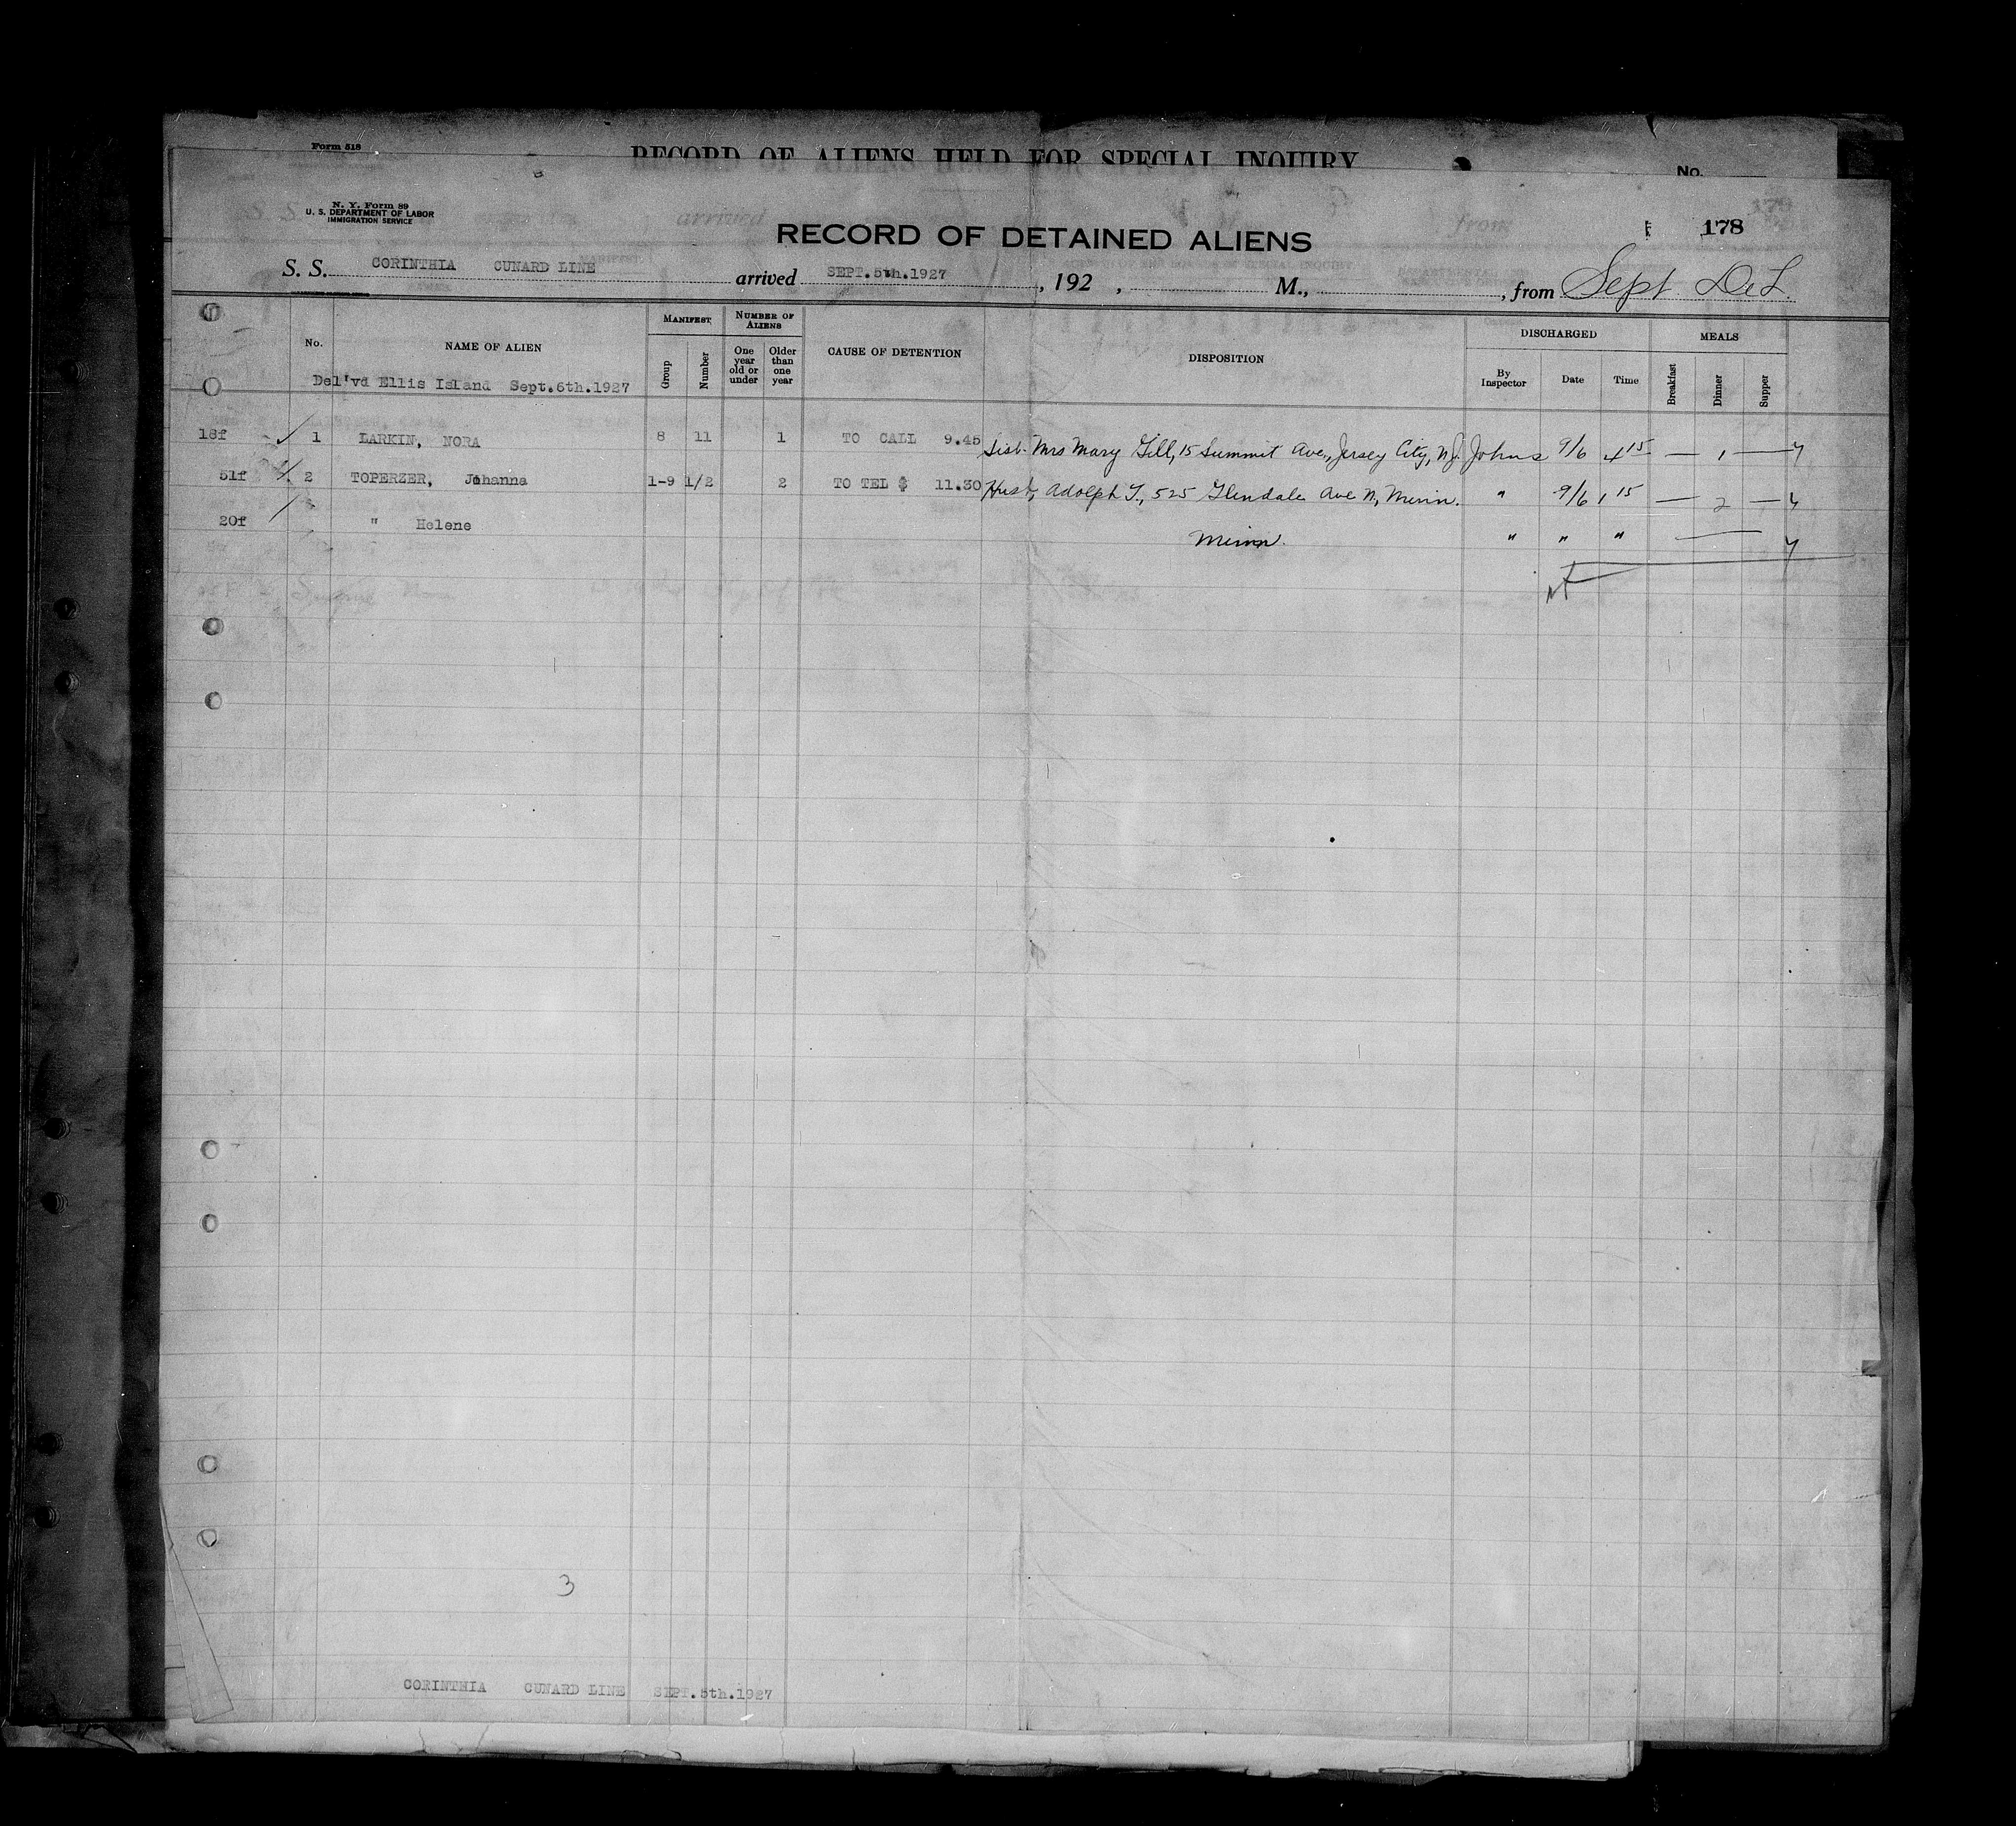 Form 518
RECORD OF ALIENS HELD FOR SPECIAL INQUIRY
No.
N. Y. Form 89
U. S. DEPARTMENT OF LABOR
IMMIGRATION SERVICE
178
RECORD OF DETAINED ALIENS
S. S. CORINTHIA CUNARD LINE arrived SEPT.5th.1927, 192 , M., , from Sept
No. NAME OF ALIEN MANIFEST Group Number NUMBER OF ALIENS One year old or under Older than one year CAUSE OF DETENTION DISPOSITION DISCHARGED By Inspector Date Time MEALS Breakfast Dinner Supper
Del'vd Ellis Island Sept.6th.1927
18f 1 LARKIN, NORA 8 11 1 TO CALL 9.45 Sist. Mrs Mary Gill, 15 Summit Ave, Jersey City, N.J. Johns 9/6 4 15 — 1 —
51f 2 TOPERZER, Johanna 1-9 1/2 2 TO TEL $ 11.30 Hust, Adolph T., 525 Glendale Ave N, Minn. " 9/6 1 15 — 2 —
20f " Helene Minn. " " "
3
CORINTHIA CUNARD LINE SEPT.5th.1927